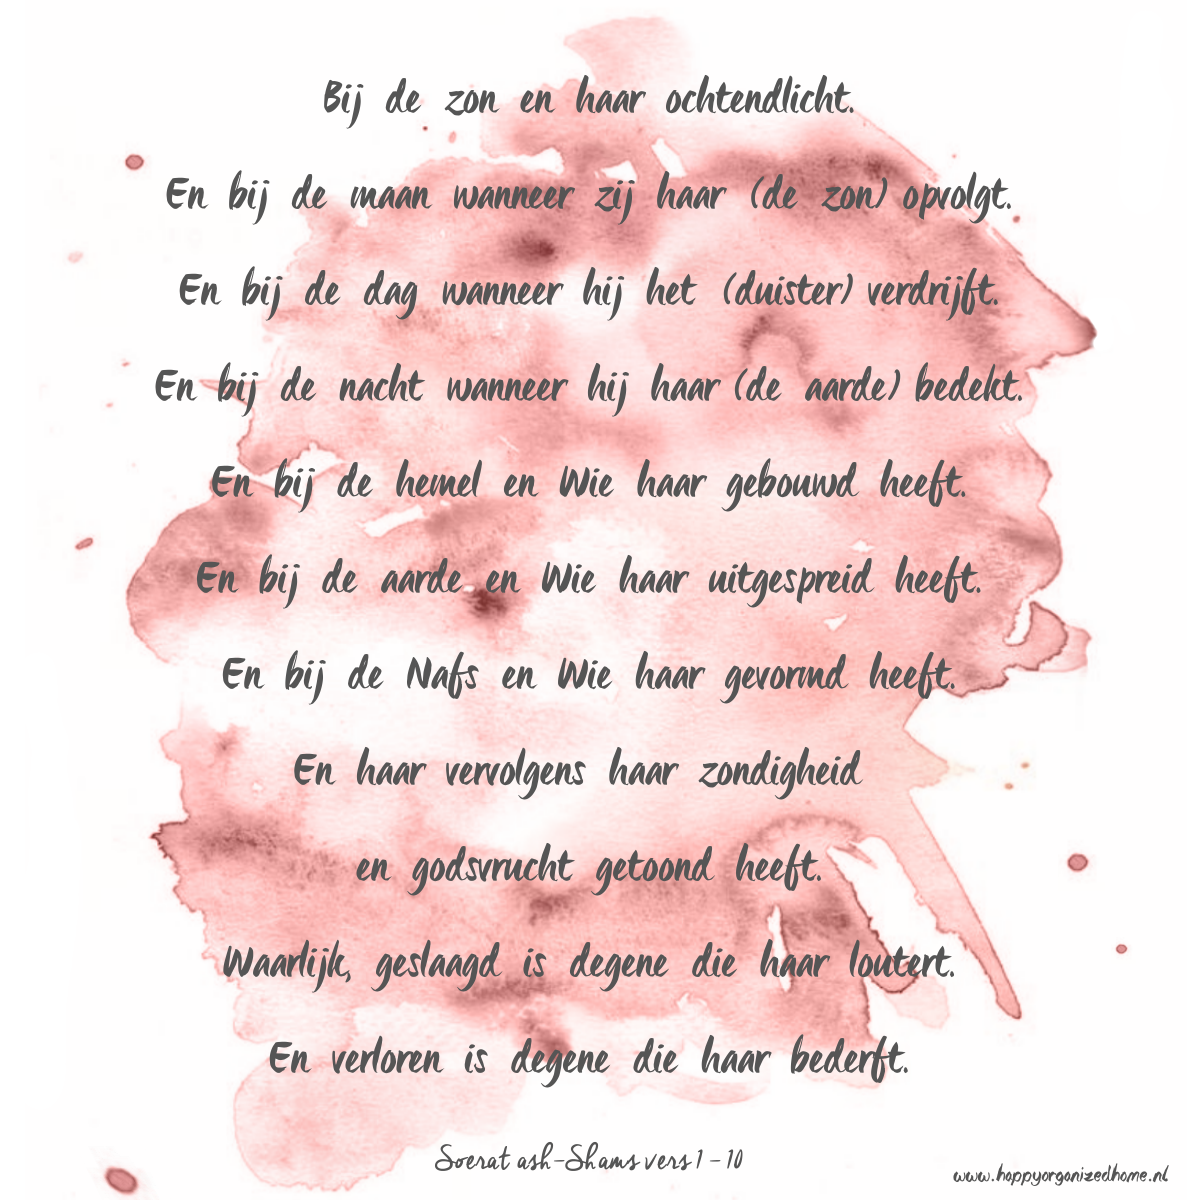 Bij de zon en haar ochtendlicht.
En bij de maan wanneer zij haar (de zon) opvolgt.
En bij de dag wanneer hij het (duister) verdrijft.
En bij de nacht wanneer hij haar (de aarde) bedekt.
En bij de hemel en Wie haar gebouwd heeft.
En bij de aarde en Wie haar uitgespreid heeft.
En bij de Nafs en Wie haar gevormd heeft.
En haar vervolgens haar zondigheid
en godsvrucht getoond heeft.
Waarlijk, geslaagd is degene die haar loutert.
En verloren is degene die haar bederft.
Soerat ash-Shams vers 1 - 10
www.happyorganizedhome.nl